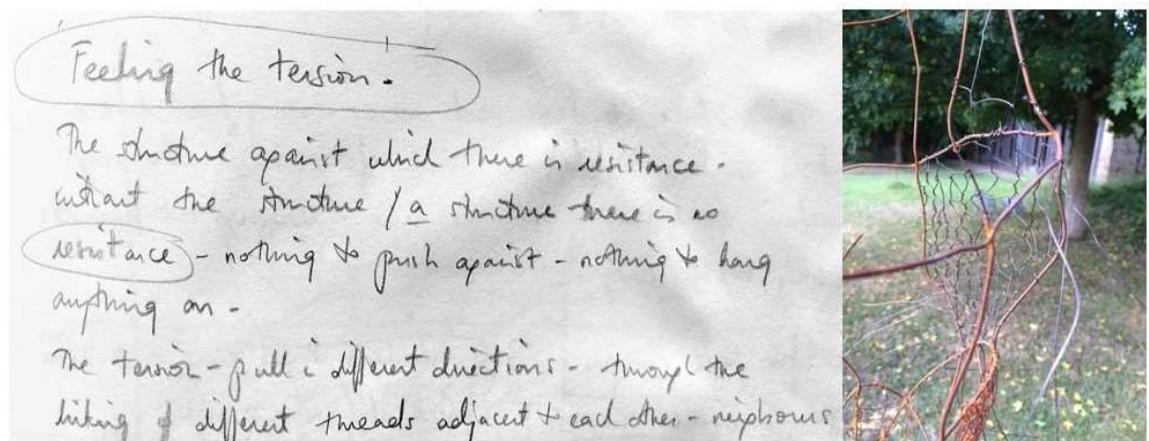 Feeling the tension.
The structure against which there is resistance.
without the structure / a structure there is no
resistance - nothing to push against - nothing to hang
anything on -
The tension - pull in different directions - through the
linking of different threads adjacent to each other - neighbours